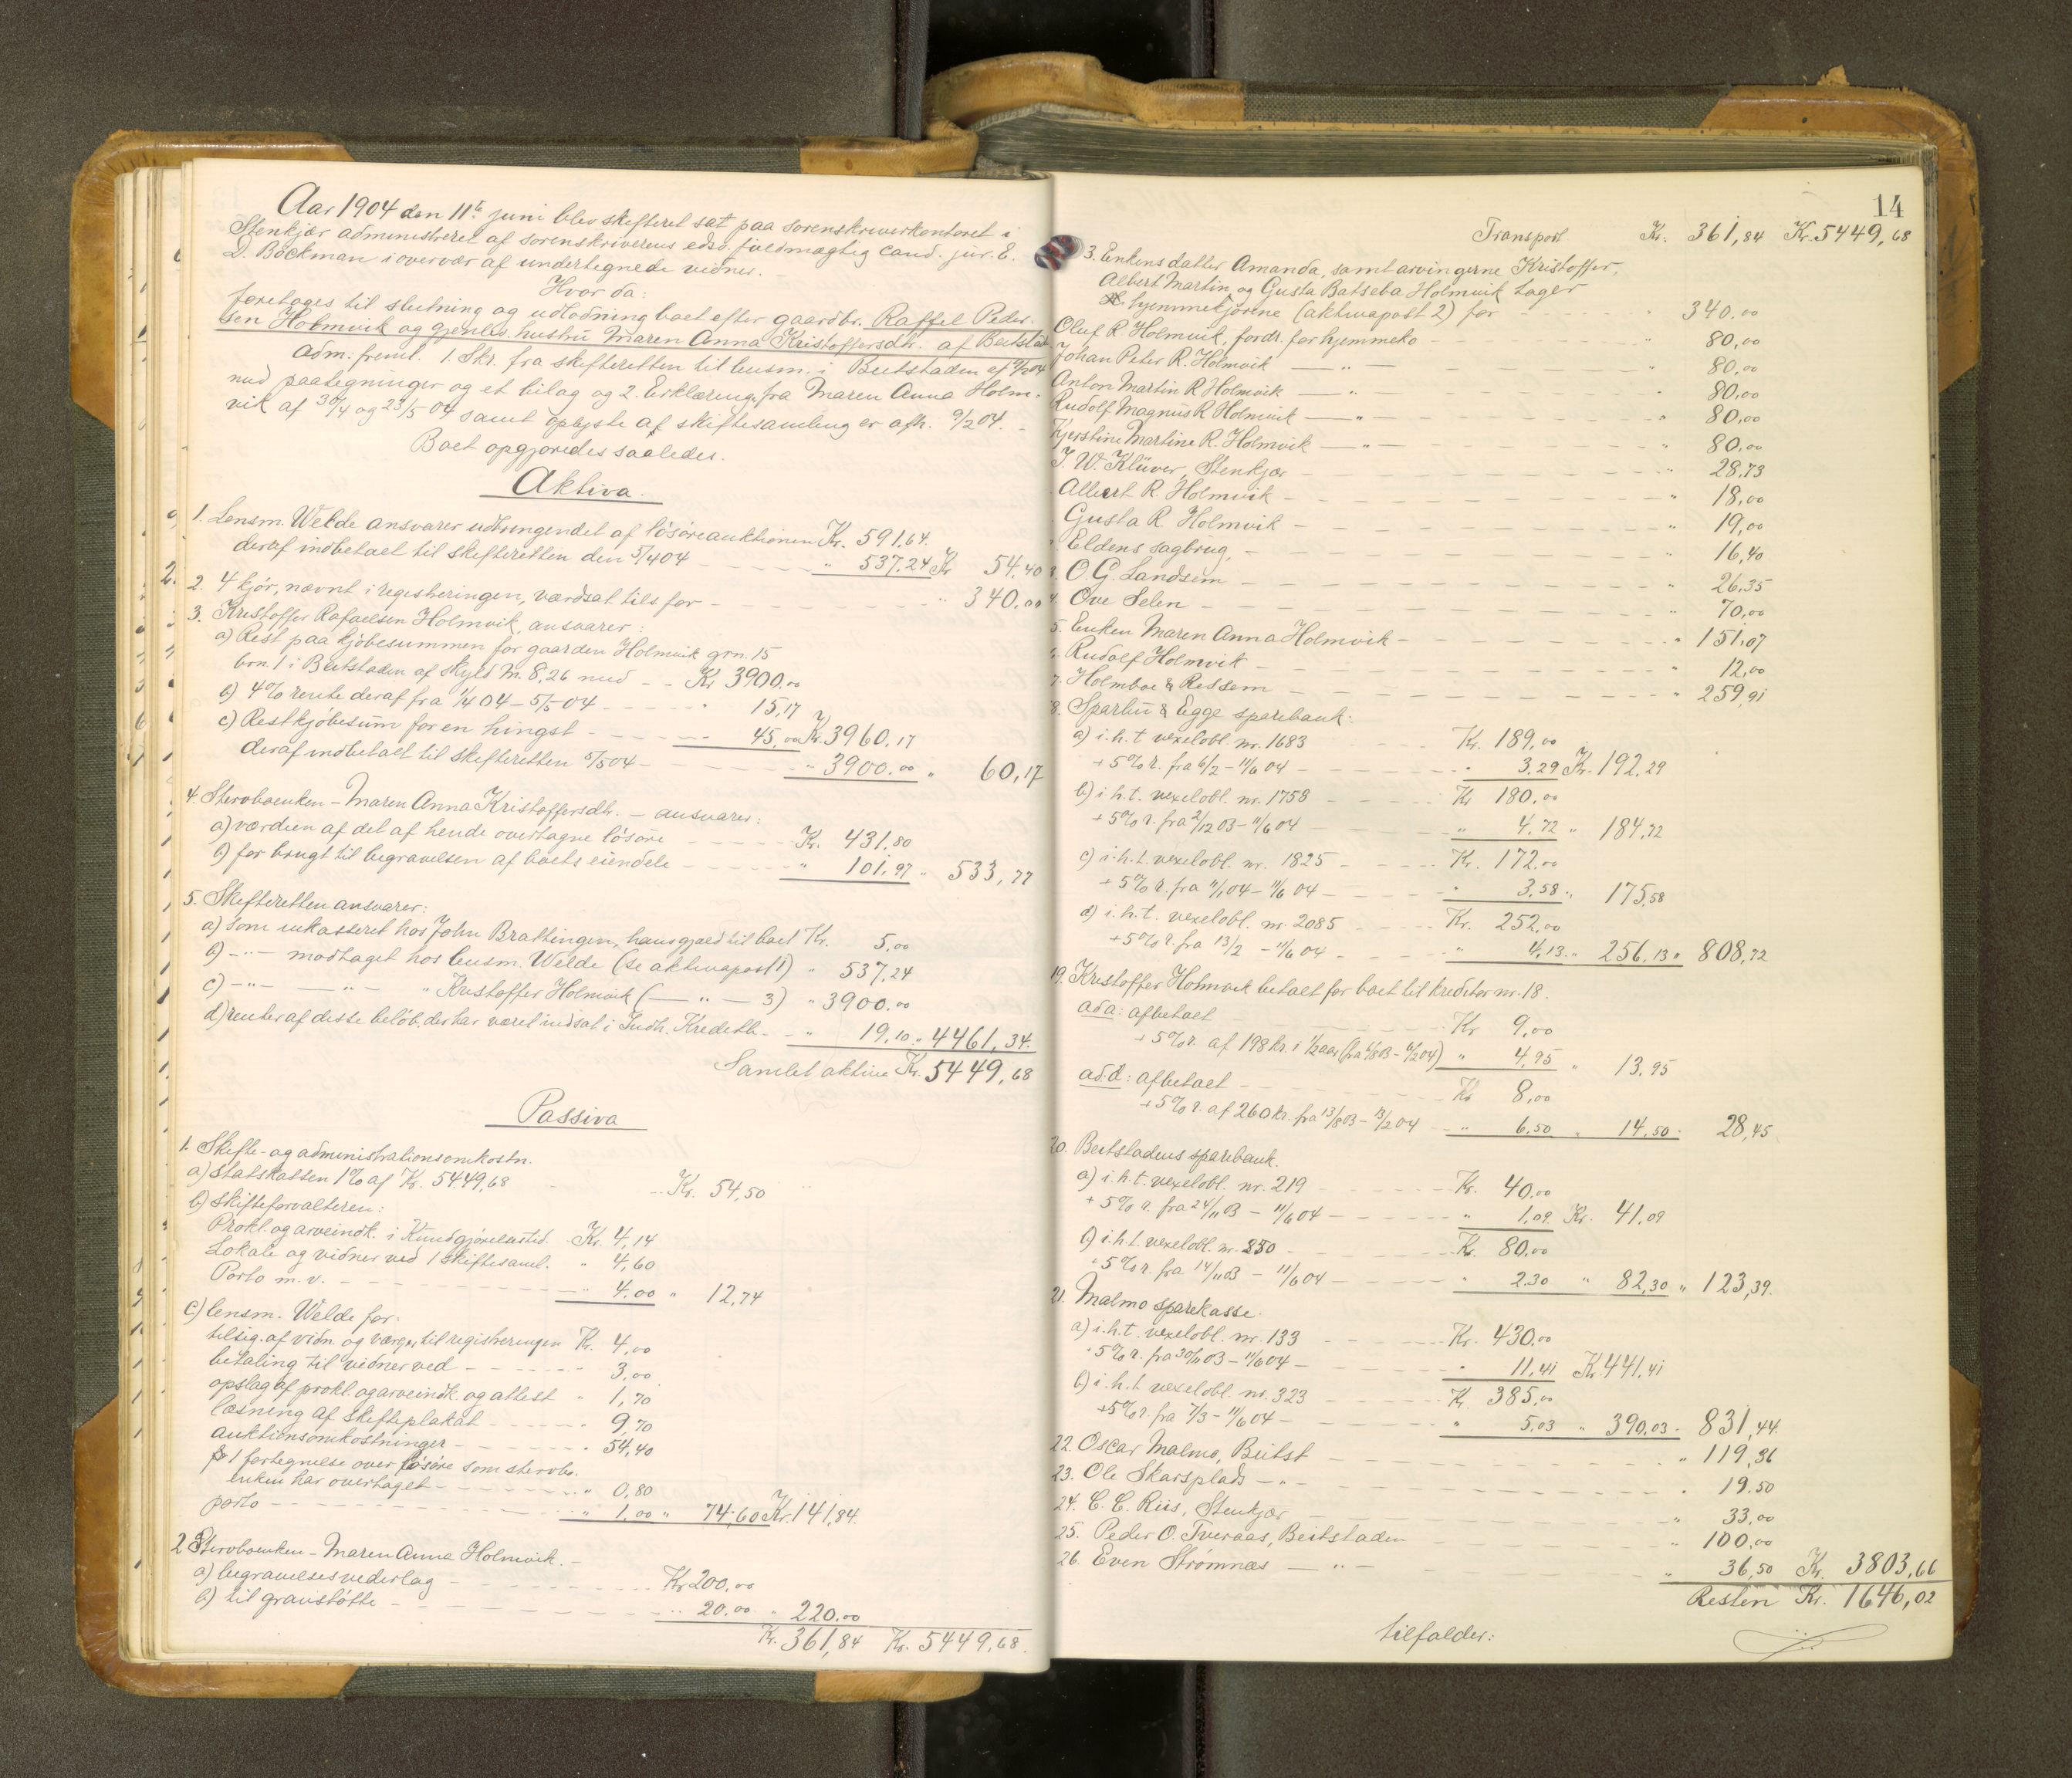 Aar 1904 den 11te juni blev skifteret sat paa sorenskriverkontoret i
Stenkjær administreret af sorenskriverens edsv. fuldmægtig cand. jur. E.
D. Böckman i overvær af undertegnede vidner. -
Hvor da:
foretoges til slutning og udlodning boet efter gaardbr. Raffel Peder-
sen Holmvik og gjenlev. hustru Maren Anna Kristoffersdtr. af Beitstad
Adm. freml. 1. Skr. fra skifteretten til lensm. i Beitstaden af 9/2 04
med paategninger og et bilag og 2. Erklæring fra Maren Anna Holm-
vik af 30/4 og 23/5 04 samt oplyste af skiftesamling er afh. 9/2 04. -
Boet opgjordes saaledes.
Aktiva.
1. Lensm. Welde ansvarer udbringendet af lösöreauktionen Kr. 591,64.
deraf indbetalt til skifteretten den 5/4 04 - " 537,24 Kr 54,40
2. 4 kjör, nævnt i registreringen, værdsat tils for - " 340,00
3. Kristoffer Rafaelsen Holmvik, ansvarer:
a) Rest paa kjöbesummen for gaarden Holmvik grn. 15
brn. 1 i Beitstaden af skyld M. 8,26 med - - Kr 3900,00
b) 4% rente deraf fra 1/4 04 - 5/5 04 - " 15,17
c) Restkjöbesum for en hingst - 45,00 Kr. 3960,17
deraf indbetalt til skifteretten 5/5 04 - " 3900,00 " 60,17
4. Stervboenken - Maren Anna Kristoffersdtr. - ansvarer:
a) værdien af det af hende overtagne lösöre - Kr. 431,80
b) for brugt til begravelsen af boets eiendele - " 101,97 " 533,77
5. Skifteretten ansvarer:
a) som inkasseret hos John Brattingen, hans gjæld til boet Kr. 5,00
b) - " - modtaget hos lensm. Welde (se aktivapost 1) " 537,24
c) - " - - " - " Kristoffer Holmvik ( - " - 3) " 3900,00
d) renter af disse belöb, der har været indsat i Indh. Kreditb. - " 19,10 " 4461,34.
Samlet aktiva Kr. 5449,68
Passiva
1. Skifte- og administrationsomkostn.
a) Statskassen 1% af Kr. 5449,68 - Kr. 54,50
b) skifteforvalteren:
Prokl. og arveindk. i Kundgjörelsestid. Kr. 4,14
Lokale og vidner ved 1 skiftesaml. " 4,60
Porto m. v. - " 4,00 " 12,74
c) lensm. Welde for:
tilsig. af vidn. og værge, til registreringen Kr. 4,00
betaling til vidner ved - " 3,00
opslag af prokl. og arveindk. og attest " 1,70
læsning af skifteplakat - " 9,70
auktionsomkostninger - " 54,40
1 fortegnelse over lösöre som stervbo-
enken har overtaget - " 0,80
porto - " 1,00 " 74,60 Kr. 141,84.
2. Stervboenken - Maren Anna Holmvik. -
a) begravelsesvederlag - Kr 200,00
b) til gravstötte - " 20,00 " 220,00
Kr. 361,84 Kr. 5449,68.
14
Transport Kr. 361,84 Kr. 5449,68
3. Enkens datter Amanda, samt arvingerne Kristoffer,
Albert Martin og Gusta Batseba Holmvik tager
hjemmekjörene (aktivapost 2) for - " 340,00
Oluf R Holmvik, fordr. for hjemmeko - " 80,00
Johan Peter R. Holmvik - " - " 80,00
Anton Martin R Holmvik - " - " 80,00
Rudolf Magnus R Holmvik - " - " 80,00
Kjerstine Martine R. Holmvik - " - " 80,00
J. W. Klüver, Stenkjær - " 28,73
Albert R. Holmvik - " 18,00
Gusta R Holmvik - " 19,00
Eldens sagbrug, - " 16,40
O. G. Landsem - " 26,35
4. Ove Selen - " 70,00
5. Enken Maren Anna Holmvik - " 151,07
Rudolf Holmvik - " 12,00
7. Holmboe & Ressem - " 259,91
8. Sparbu & Egge sparebank:
a) i. h. t. vexelobl. nr. 1683 - Kr. 189,00
+ 5% r. fra 6/2 - 11/6 04 - " 3,29 Kr. 192,29
b) i. h. t. vexelobl. nr. 1758 - Kr 180,00
+ 5% r. fra 2/12 03 - 11/6 04 - " 4,72 " 184,72
c) i. h. t. vexelobl. nr. 1825 - Kr. 172,00
+ 5% r. fra 11/1 04 - 11/6 04 - " 3,58 " 175,58
d) i. h. t. vexelobl. nr 2085 - Kr. 252,00
+ 5% r. fra 13/2 - 11/6 04 - " 4,13 " 256,13 " 808,72
19. Kristoffer Holmvik betalt for boet til kreditor nr. 18.
ad a: afbetalt - Kr 9,00
+ 5% r. af 198 kr. i 1/2 aar (fra 6/8 03 - 6/2 04) " 4,95 " 13,95
ad d: afbetalt - Kr 8,00
+ 5% r. af 260 kr. fra 13/8 03 - 13/2 04 - " 6,50 " 14,50 " 28,45
20. Beitstadens sparebank.
a) i. h. t. vexelobl. nr. 219 - Kr. 40,00
+ 5% r. fra 24/11 03 - 11/6 04 - " 1,09 Kr. 41,09
b) i. h. t. vexelobl. nr. 250 - Kr. 80,00
+ 5% r. fra 14/11 03 - 11/6 04 - " 2,30 " 82,30 " 123,39.
21. Malmo sparekasse.
a) i. h. t. vexelobl. nr. 133 - Kr. 430,00
+ 5% r. fra 30/11 03 - 11/6 04 - " 11,41 Kr. 441,41
b) i. h. t vexelobl. nr. 323 - Kr. 385,00
+ 5% r. fra 7/3 - 11/6 04 - " 5,03 " 390,03 " 831,44.
22. Oscar Malmo, Beitst - " 119,36
23. Ole Skarsplads - " - " 19,50
24. C. C. Riis, Stenkjær - " 33,00
25. Peder O. Tveraas, Beitstaden - " 100,00
26. Even Strömnæs - " - " 36,50 Kr. 3803,66
Resten Kr. 1646,02
tilfalder: